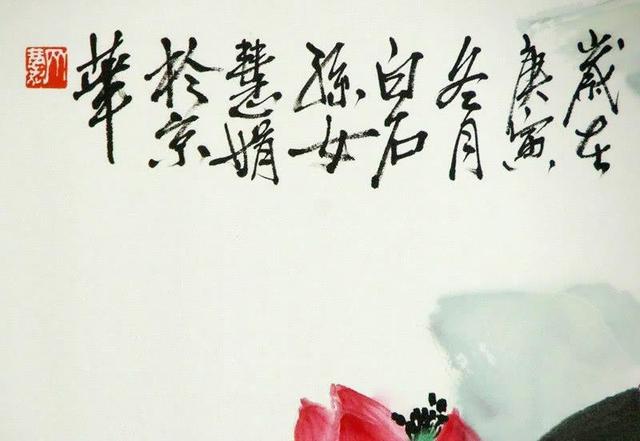 歲在
庚寅
冬月
白石
孫女
慧娟
於京
華